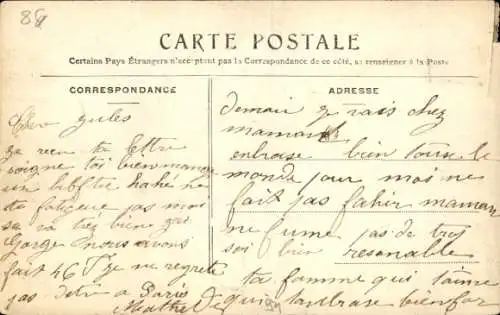 88
CARTE POSTALE
Certains Pays Étrangers n'acceptant pas la Correspondance de ce côté, se renseigner à la Poste
CORRESPONDANCE
Cher Jules
je recu ta lettre
soigne toi bien mange
un bifteke haché ne
te fatigue pas moi
sa va très bien
Gorge nous avons
fait 46 F je ne regrette
pas detre a Paris
ADRESSE
demain je vais chez
maman
enbrase bien tous le
monde pour moi ne
fait pas fahir maman
ne fume pas de trop
soi bien resonable
ta famme qui t'aime
qui tanbrase bien for